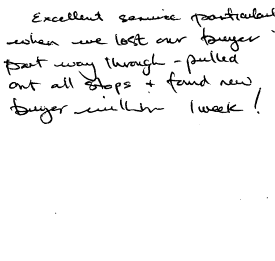 Excellent service particularly
when we lost our buyer
part way through - pulled
out all stops + found new
buyer within 1 week!